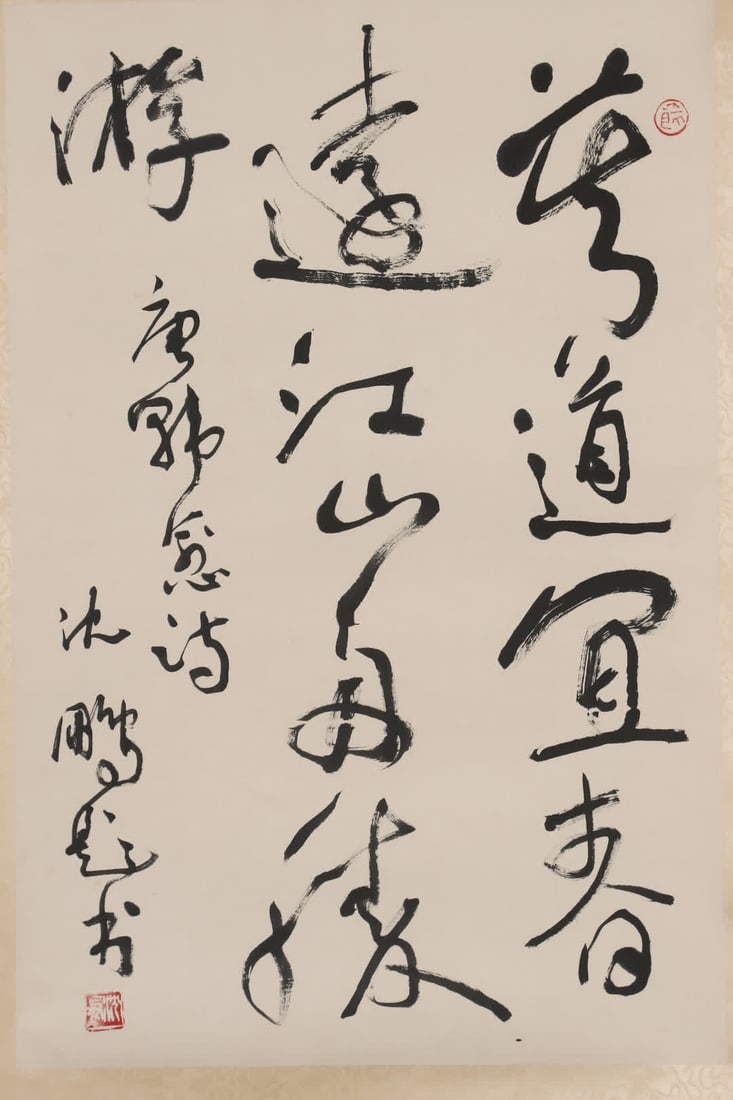 莫道宜春
遠江山多勝
游
唐韓愈詩
沈鵬題書